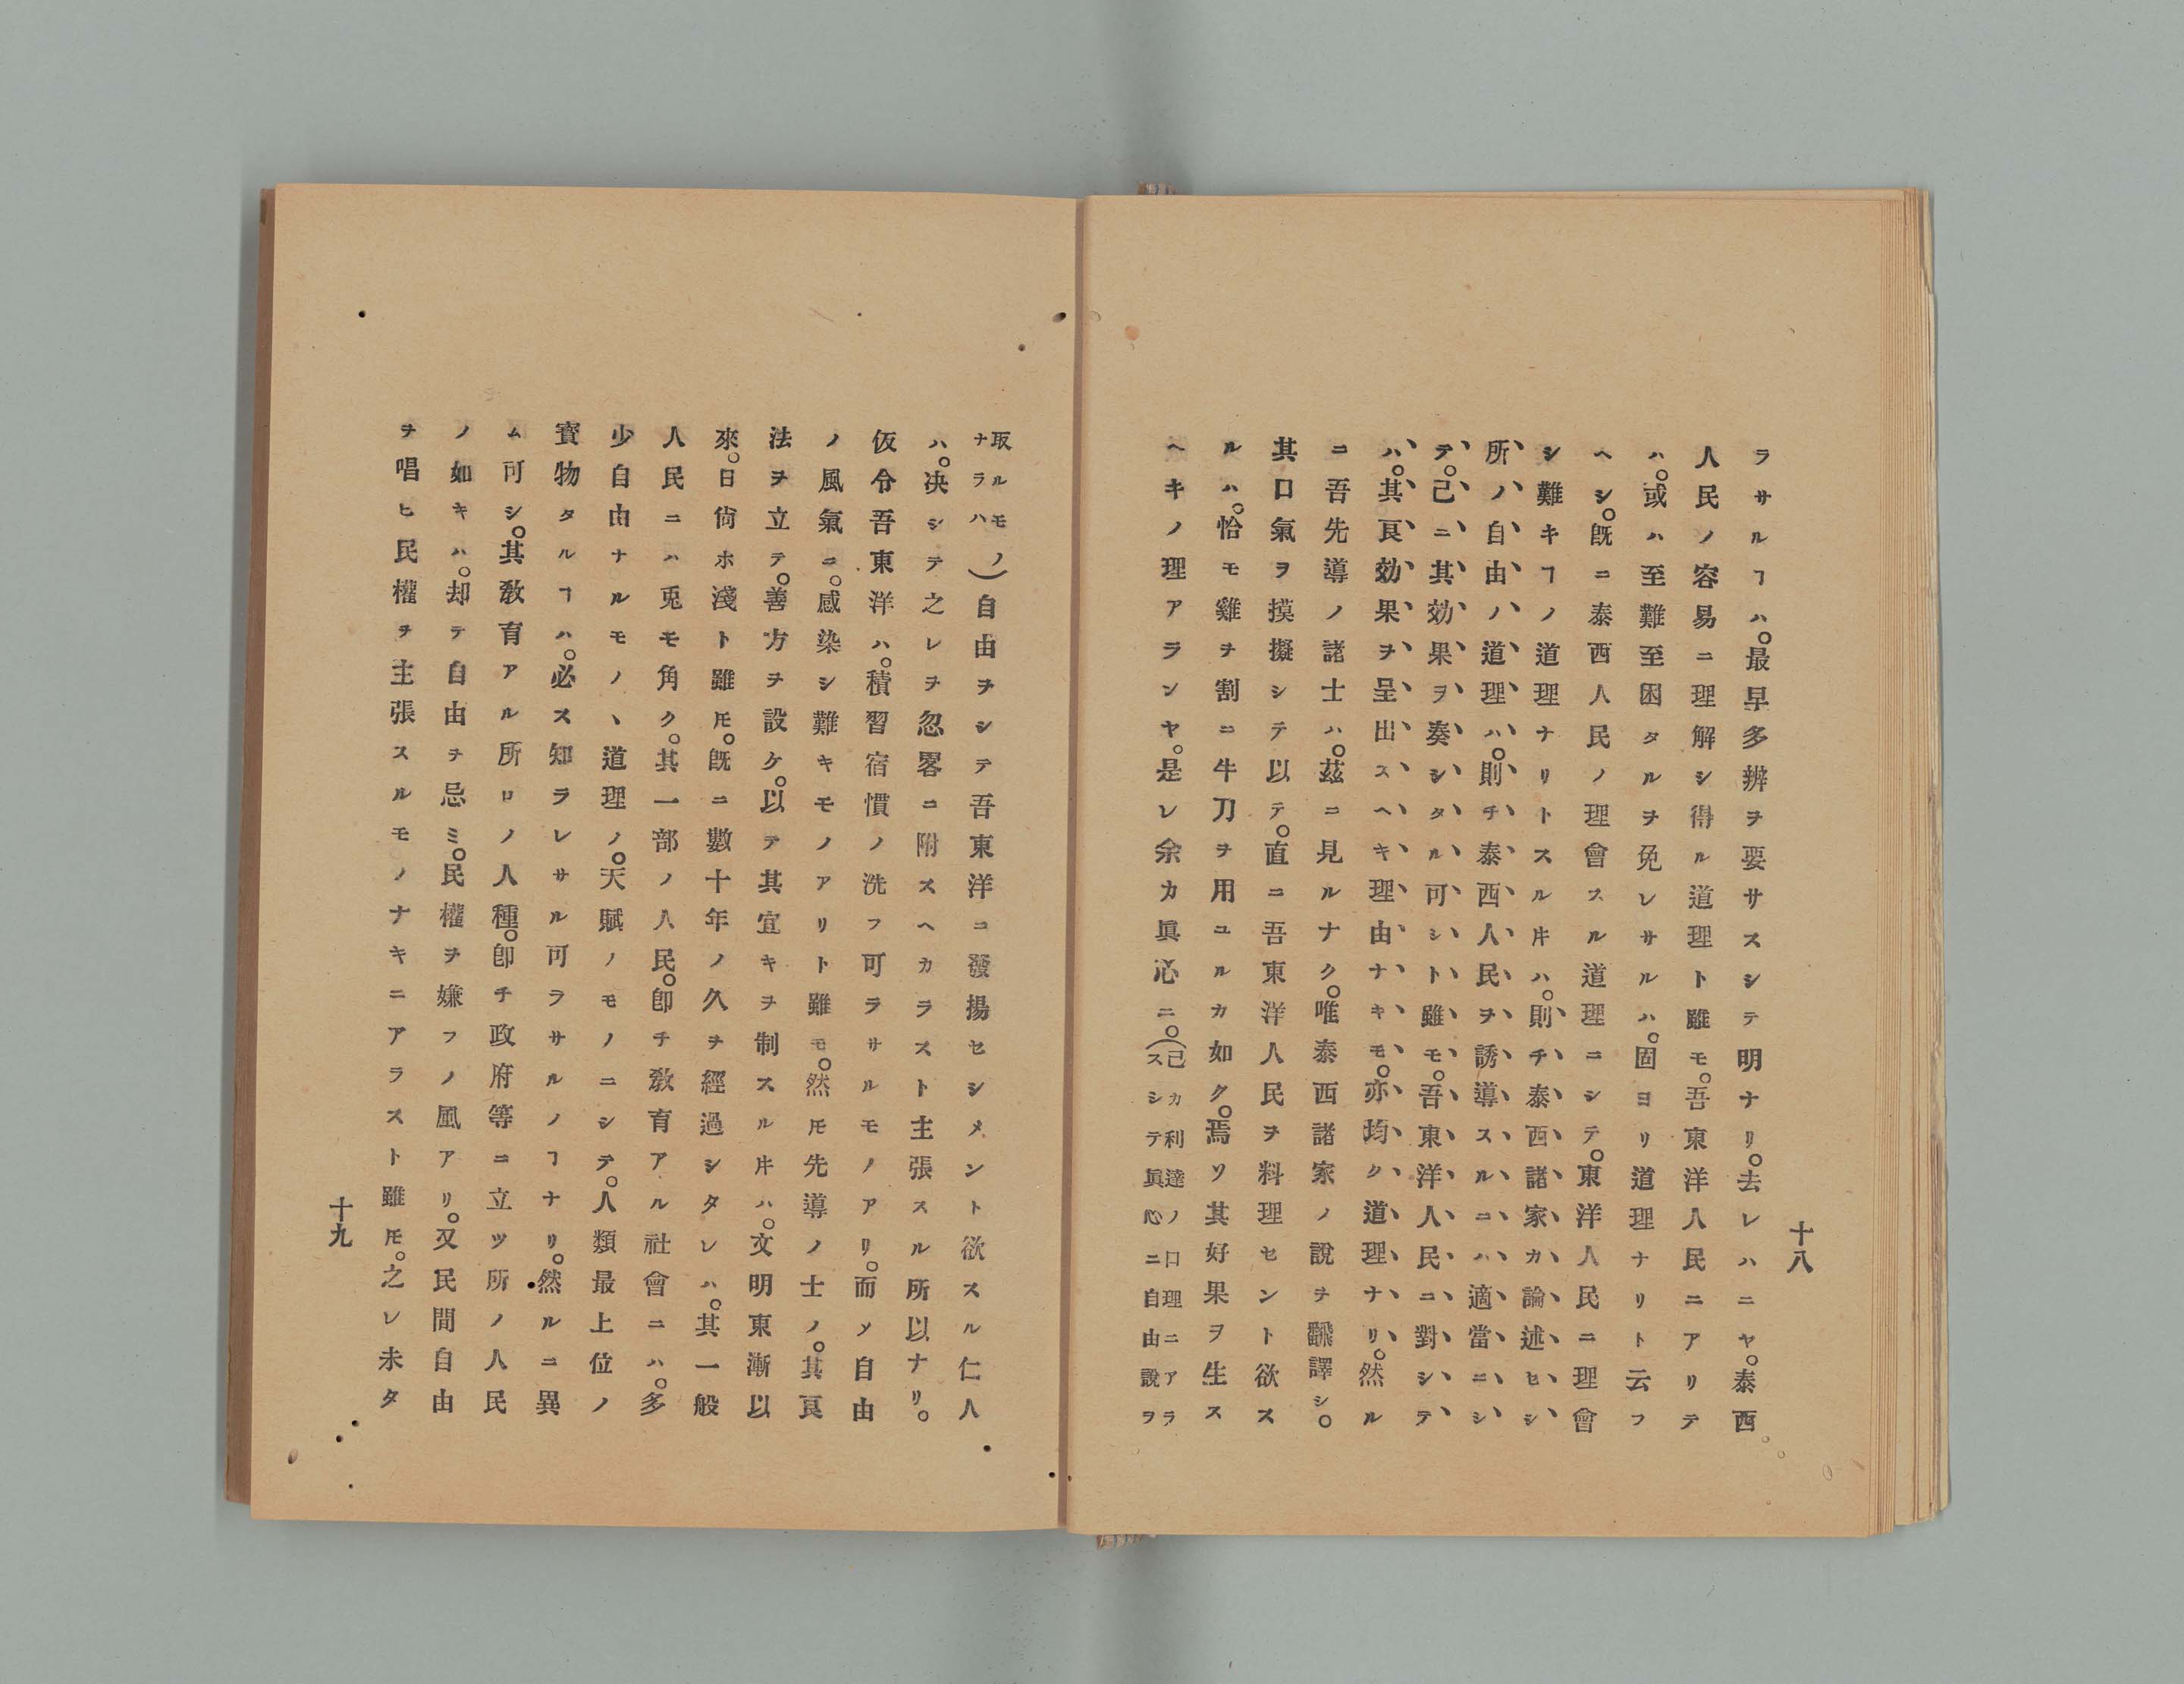 十八
ラサルヿハ。最早多辨ヲ要サスシテ明ナリ。去レハニヤ。泰西
人民ノ容易ニ理解シ得ル道理ト雖モ。吾東洋人民ニアリテ
ハ。或ハ至難至困タルヲ免レサルハ。固ヨリ道理ナリト云フ
ヘシ。既ニ泰西人民ノ理會スル道理ニシテ。東洋人民ニ理會
シ難キヿノ道理ナリトスル𪜈ハ。則チ泰西諸家カ論述セシ
所ノ自由ノ道理ハ。則チ泰西人民ヲ誘導スルニハ適當ニシ
テ。己ニ其効果ヲ奏シタル可シト雖モ。吾東洋人民ニ對シテ
ハ。其良効果ヲ呈出スヘキ理由ナキモ。亦均ク道理ナリ。然ル
ニ吾先導ノ諸士ハ。茲ニ見ルナク。唯泰西諸家ノ說ヲ飜譯シ。
其口氣ヲ摸擬シテ以テ。直ニ吾東洋人民ヲ料理セント欲ス
ルハ。恰モ雞ヲ割ニ牛刀ヲ用ユルカ如ク。焉ソ其好果ヲ生ス
ヘキノ理アランヤ。是レ余カ眞心ニ。(己カ利達ノ口理ニアラスシテ眞心ニ自由說ヲ
取ルモノナラハ)自由ヲシテ吾東洋ニ發揚セシメント欲スル仁人
ハ。决シテ之レヲ忽畧ニ附スヘカラスト主張スル所以ナリ。
仮令吾東洋ハ。積習宿慣ノ洗フ可ラサルモノアリ。而メ自由
ノ風氣ニ。感染シ難キモノアリト雖モ。然𪜈先導ノ士ノ。其良
法ヲ立テ。善方ヲ設ケ。以テ其宜キヲ制スル𪜈ハ。文明東漸以
來。日尙ホ淺ト雖𪜈。既ニ數十年ノ久ヲ經過シタレハ。其一般
人民ニハ兎モ角ク。其一部ノ人民。卽チ敎育アル社會ニハ。多
少自由ナルモノヽ道理ノ。天賦ノモノニシテ。人類最上位ノ
寳物タルヿハ。必ス知ラレサル可ラサルノヿナリ。然ルニ異
ム可シ。其敎育アル所ロノ人種。卽チ政府等ニ立ツ所ノ人民
ノ如キハ。却テ自由ヲ忌ミ。民權ヲ嫌フノ風アリ。又民間自由
ヲ唱ヒ民權ヲ主張スルモノナキニアラスト雖𪜈。之レ未タ
十九